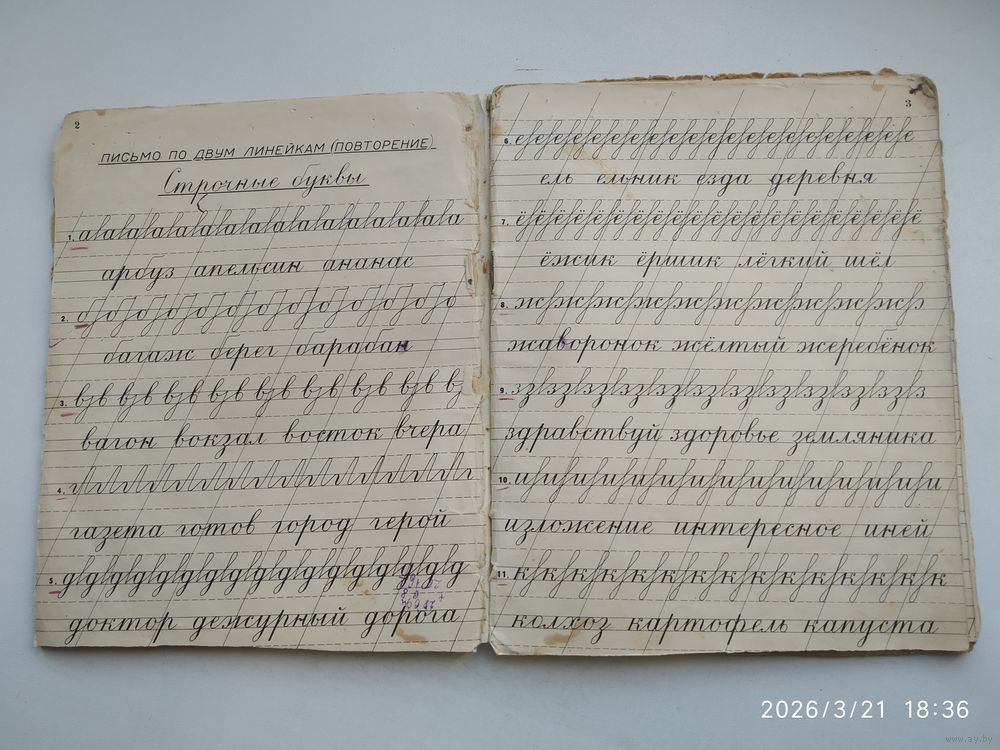 2
ПИСЬМО ПО ДВУМ ЛИНЕЙКАМ (ПОВТОРЕНИЕ)
Строчные буквы
1. а а а а а а а а а а а а а а а а
арбуз апельсин ананас
2. б б б б б б б б б б
багаж берег барабан
3. в в в в в в в в в
вагон вокзал восток вчера
4. г г г г г г г г г г г г г г г
газета готов город герой
5. д д д д д д д д д д д д д д д д д
доктор дежурный дорога
3
6. е е е е е е е е е е е е е е е е е е е
ель ельник езда деревня
7. ё ё ё ё ё ё ё ё ё ё ё ё ё ё ё ё ё ё ё
ёжик ёршик лёгкий шёл
8. ж ж ж ж ж ж ж ж ж ж
жаворонок жёлтый жеребёнок
9. з з з з з з з з з з з з
здравствуй здоровье земляника
10. и и и и и и и и и и и и и и
изложение интересное иней
11. к к к к к к к к к к к к к к к
колхоз картофель капуста
2026/3/21 18:36
www.ay.by